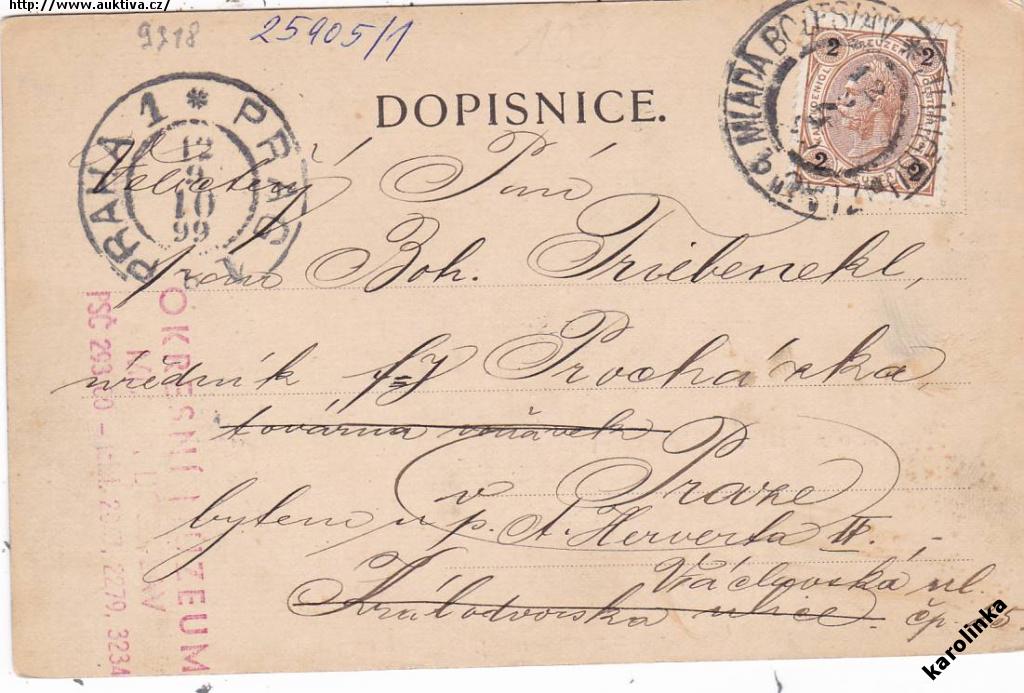 http://www.auktiva.cz/
9318
25905/1
DOPISNICE.
MLADÁ BOLESLAV
2 2
2 2
PRAHA 1 * PRAG 1
12
9
10
99
Velectěný Pán
pan Boh. Triebenekl,
úředník f-y Procházka,
továrna
v Praze
bytem u p. A. Herverta II.,
Václavská ul.
Královdvorska ulice čp.
OKRESNÍ MUZEUM
PSČ 293 2279, 3234
karolinka